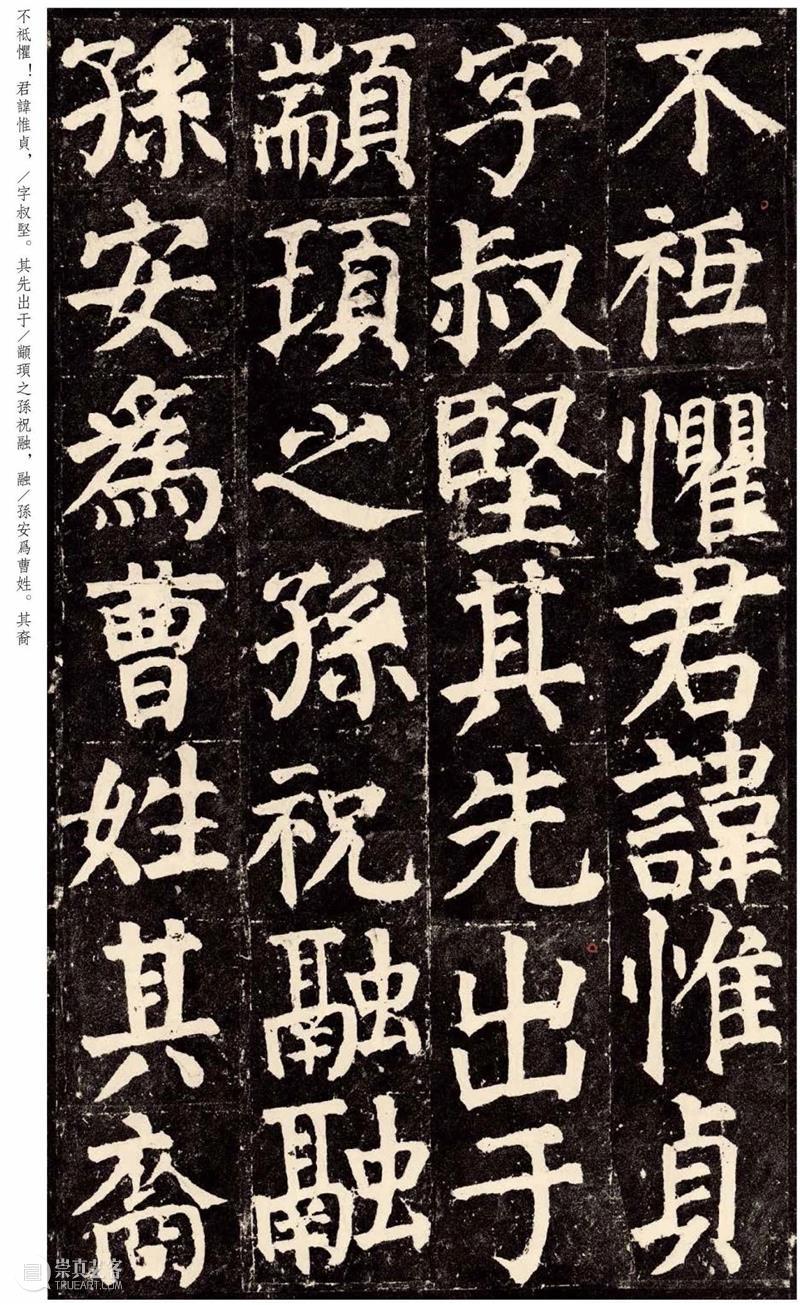 不祗懼君諱惟貞
字叔堅其先出于
顓頊之孫祝融融
孫安爲曹姓其裔
不祗懼！君諱惟貞，／字叔堅。其先出于／顓頊之孫祝融，融／孫安爲曹姓。其裔
崇真艺客
TRUEART.COM